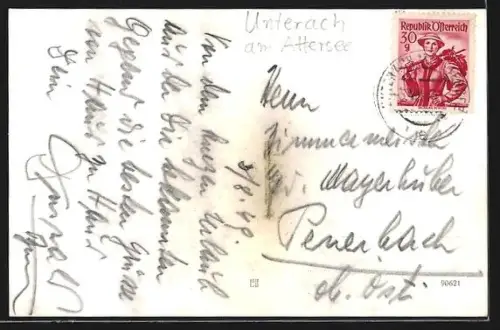 Unterach
am Attersee
Republik Österreich
30
g
3/8.49.
Von dem kurzen Urlaub
aus der Dir bekannten
Gegend die besten Grüße
von Haus zu Haus
Dein
Herrn
Zimmermeister
Mayerhuber
Peuerbach
Ob. Öst.
90621